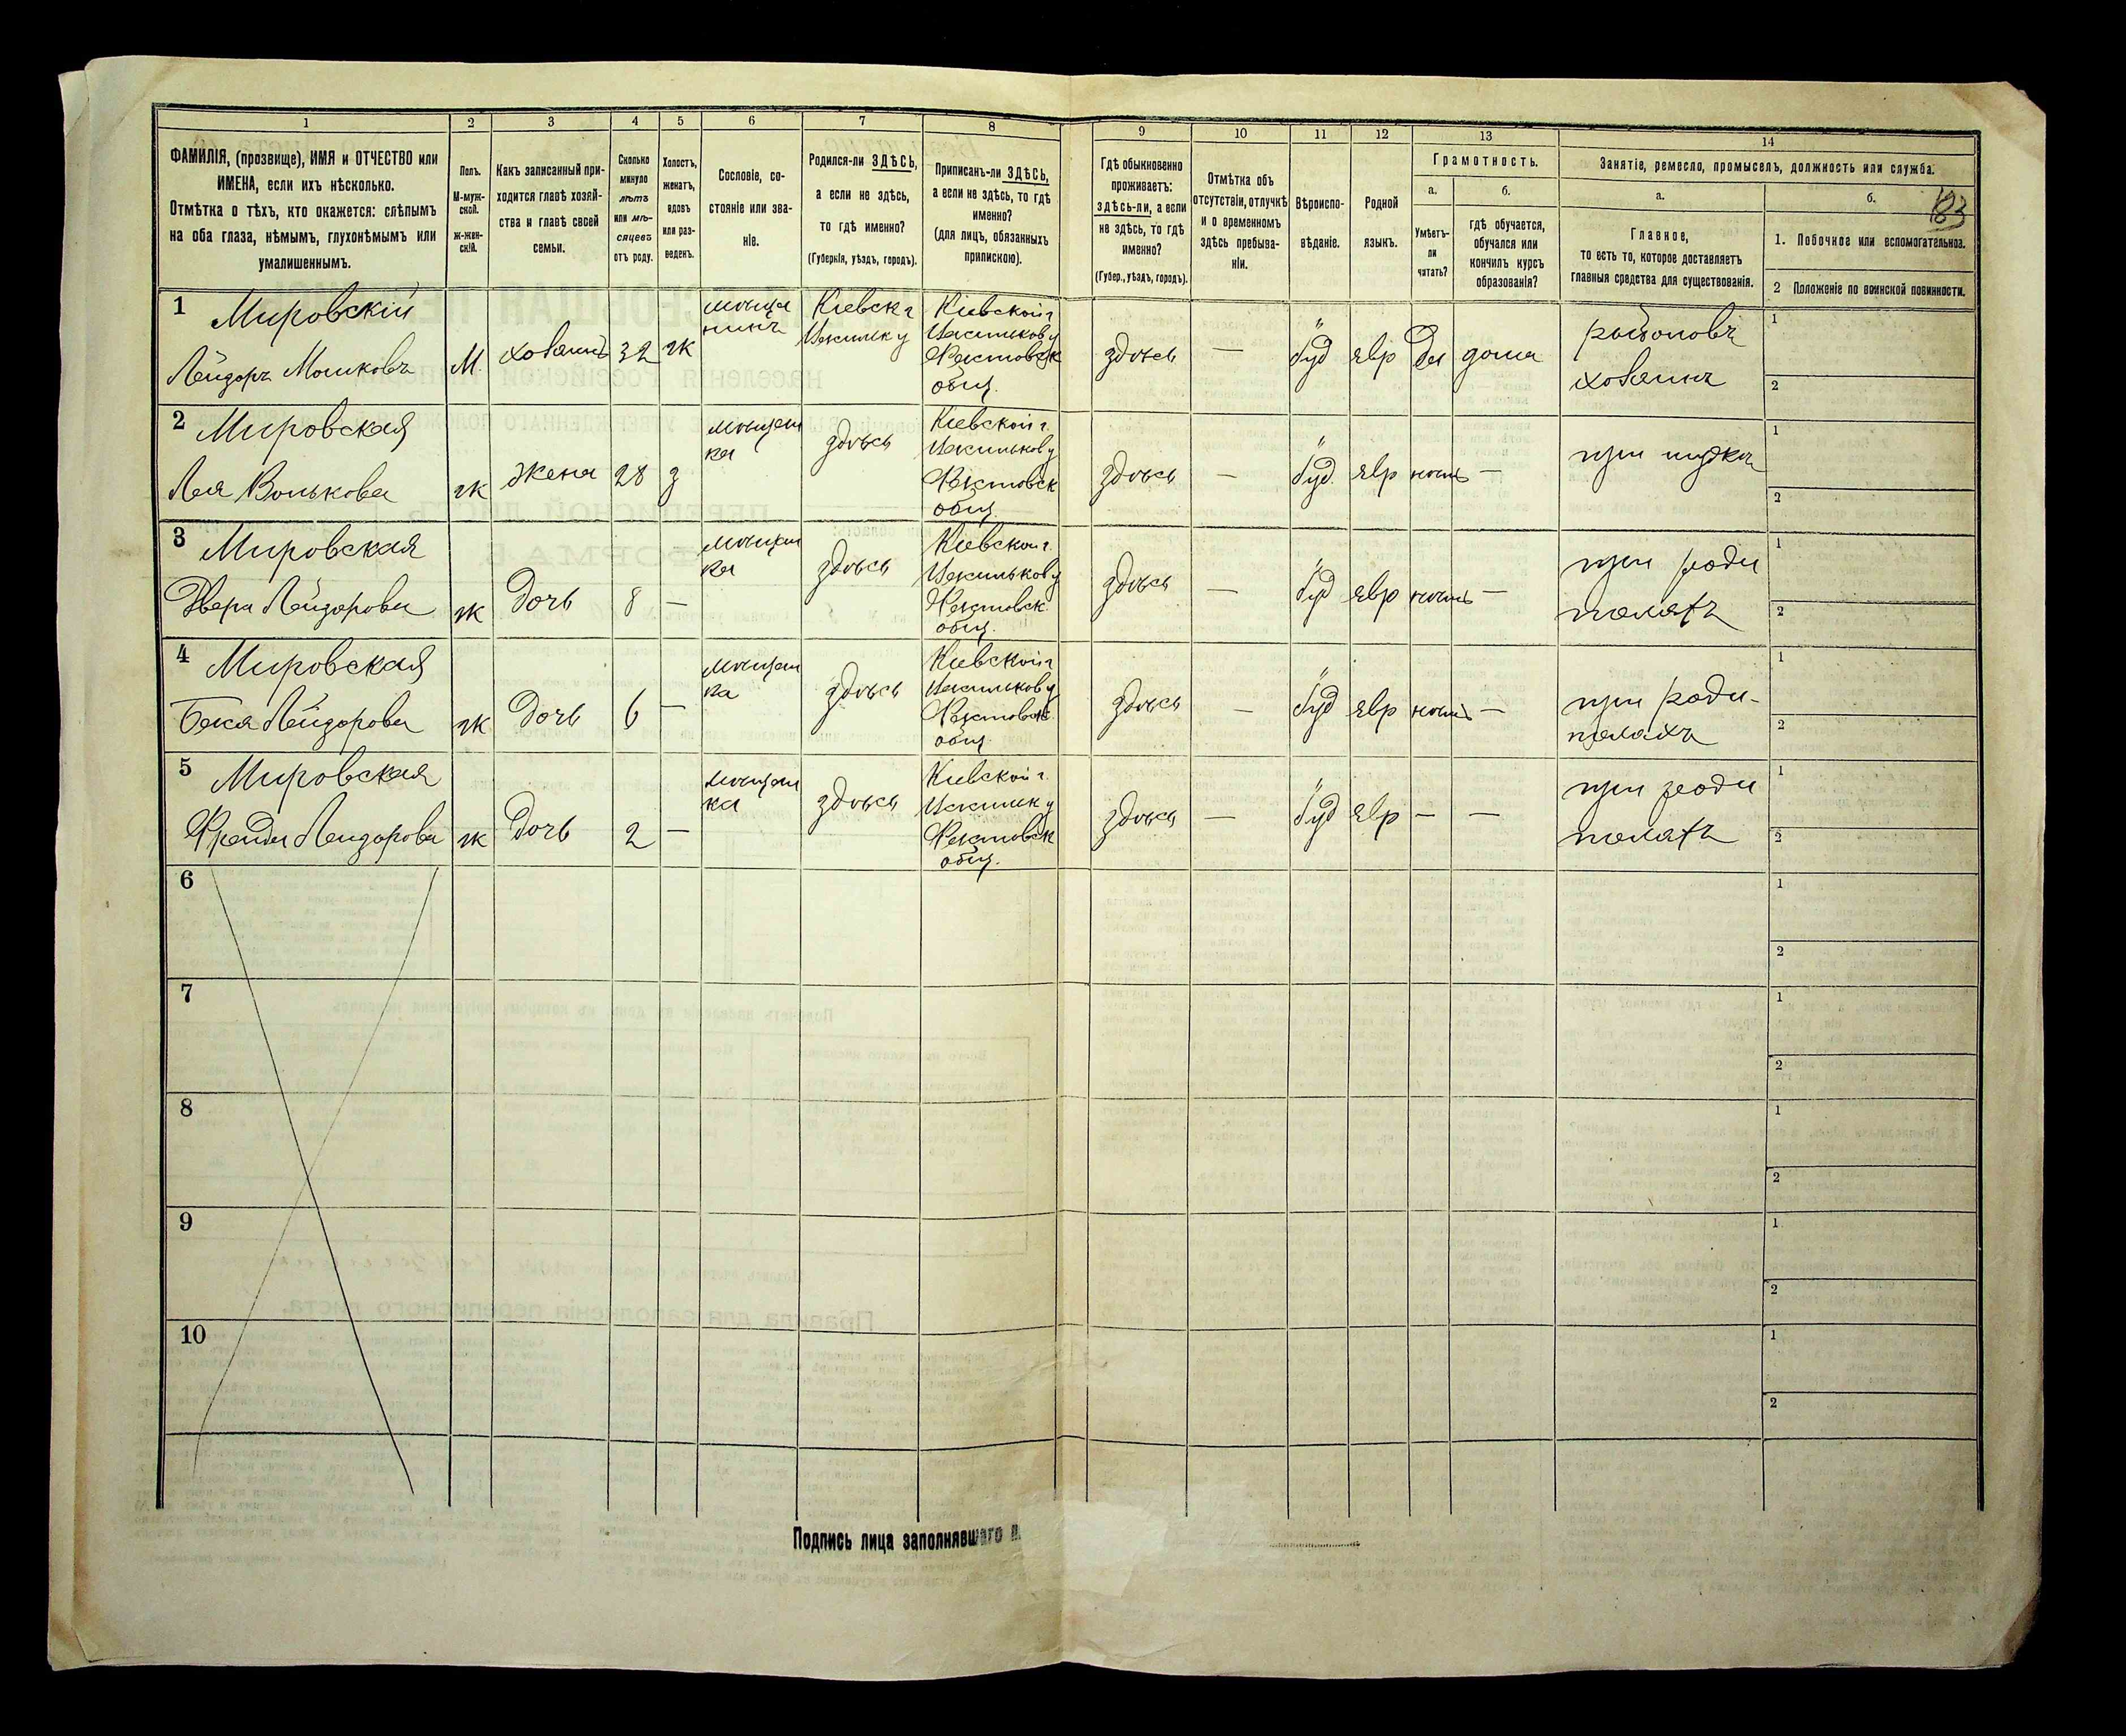 1
2
3
4
5
6
7
8
9
10
11
12
13
14
ФАМИЛІЯ, (прозвище), ИМЯ и ОТЧЕСТВО или
ИМЕНА, если ихъ нѣсколько.
Отмѣтка о тѣхъ, кто окажется: слѣпымъ
на оба глаза, нѣмымъ, глухонѣмымъ или
умалишеннымъ.
Полъ.
М-муж-
ской.
Ж-жен-
скій.
Какъ записанный при-
ходится главѣ хозяй-
ства и главѣ своей
семьи.
Сколько
минуло
лѣтъ
или мѣ-
сяцевъ
отъ роду.
Холостъ,
женатъ,
вдовъ
или раз-
веденъ.
Сословіе, со-
стояніе или зва-
ніе.
Родился-ли ЗДѢСЬ,
а если не здѣсь,
то гдѣ именно?
(Губернія, уѣздъ, городъ).
Приписанъ-ли ЗДѢСЬ,
а если не здѣсь, то гдѣ
именно?
(для лицъ, обязанныхъ
припискою).
Гдѣ обыкновенно
проживаетъ:
здѣсь-ли, а если
не здѣсь, то гдѣ
именно?
(Губер., уѣздъ, городъ).
Отмѣтка объ
отсутствіи, отлучкѣ
и о временномъ
здѣсь пребыва-
ніи.
Вѣроиспо-
вѣданіе.
Родной
языкъ.
Грамотность.
а.
Умѣетъ-
ли
читать?
б.
гдѣ обучается,
обучался или
кончилъ курсъ
образованія?
Занятіе, ремесло, промыселъ, должность или служба.
а.
Главное,
то есть то, которое доставляетъ
главныя средства для существованія.
б.
183
1. Побочное или вспомогательное.
2 Положеніе по воинской повинности.
1 Мировскій
Лейзоръ Мошковъ
М.
хозяинъ
32
ж
мѣща
нинъ
Кіевск г
Васильк у
Кіевской г
Васильков у
общ.
здѣсь
—
іуд
евр
да
дома
хозяинъ
1
2
2 Мировская
Лея Волькова
ж
жена
28
з
мѣщан
ка
здѣсь
Кіевской г.
Васильков у
общ.
здѣсь
—
іуд.
евр
нѣтъ
—
при мужѣ
1
2
3 Мировская
Двера Лейзорова
ж
дочь
8
—
мѣщан
ка
здѣсь
Кіевской г.
Васильков у
общ.
здѣсь
—
іуд
евр
нѣтъ
—
при роди
теляхъ
1
2
4 Мировская
Бася Лейзорова
ж
дочь
6
—
мѣщан
ка
здѣсь
Кіевской г
Васильков у
общ.
здѣсь
—
іуд
евр
нѣтъ
—
при роди-
теляхъ
1
2
5 Мировская
Фрейда Лейзорова
ж
дочь
2
—
мѣщан
ка
здѣсь
Кіевской г.
Васильк у
общ.
здѣсь
—
іуд
евр
—
—
при роди
теляхъ
1
2
6
1
2
7
1
2
8
1
2
9
1
2
10
1
2
Подпись лица заполнявшаго